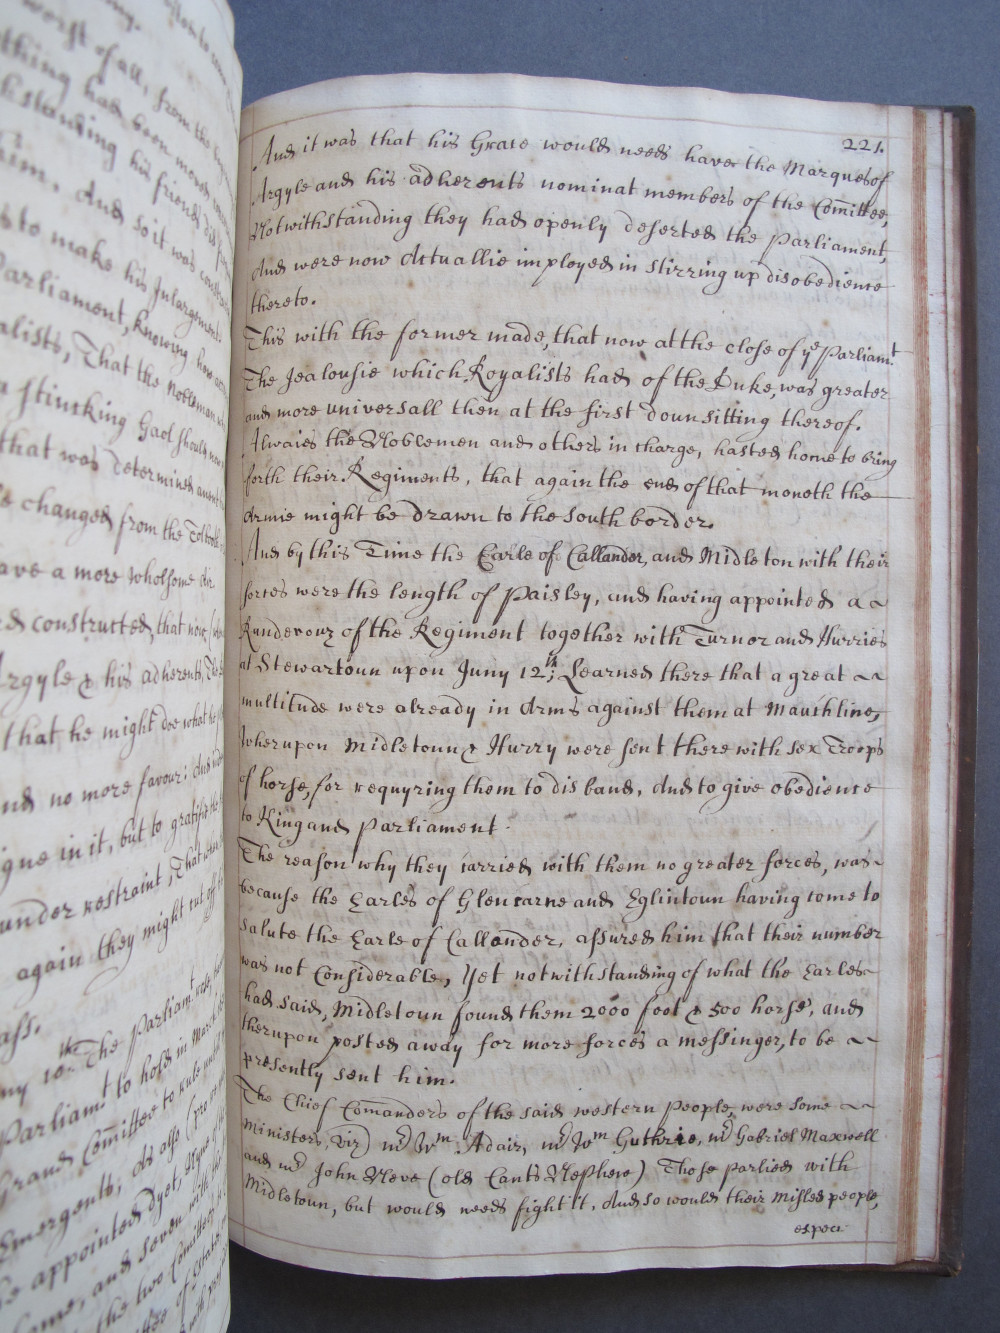 worst of all, from the
thing had been moved
standing his friends did
him. And so it was
s to make his Inlargement
Parliament, knowing how
alists, That the Nobleman
a stincking Gaol should
that was determined anent
e changed from the Tolbooth
ave a more wholsome air
ed constructed, that now
Argyle & his adherents, The
that he might doe what he
and no more favour: And
igne in it, but to gratifie the
under restraint, That when
again they might cut off
ass.
ny 10th The Parliamt
Parliamt to hold in March
Grand Comittee to rule untill
Emergents, As also (pro re
e appointed dyet, Nyne of the
ame, and seven with the
the two Comittees
221.
And it was that his Grace would needs have the Marques of
Argyle and his adherents nominat members of the Comittee,
Notwithstanding they had openly deserted the Parliament,
And were now Actuallie imployed in stirring up disobedience
thereto.
This with the former made, that now at the close of ye Parliamt
The Jealousie which Royalists had of the Duke, was greater
and more universall then at the first dounsitting thereof.
Alwaies the Noblemen and others in charge, hasted home to bring
forth their Regiments, that again the end of that moneth the
Armie might be drawn to the South border.
And by this Time the Earle of Callander, and Midleton with their
forces were the length of Paisley, and having appointed a
Randevouz of the Regiment together with Turnor and Hurries
at Stewartoun upon Juny 12th; Learned there that a great
multitude were already in Arms against them at Mauchline,
wherupon Midletoun & Hurry were sent there with sex Troops
of horse, for requyring them to disband, And to give obedience
to King and Parliament.
The reason why they carried with them no greater forces, was
because the Earles of Glencarne and Eglintoun having come to
salute the Earle of Callander, assured him that their number
was not Considerable, Yet notwithstanding of what the Earles
had said, Midletoun found them 2000 foot & 500 horse, and
therupon posted away for more forces a messinger, to be
presently sent him.
The Chief Comanders of the said western People were some
Ministers, viz) mr Wm Adair, mr Wm Guthrie, mr Gabriel Maxwell
and mr John Neve (old Cants Nephew) Those parlied with
Midletoun, but would needs fight it, And so would their misled people,
especi